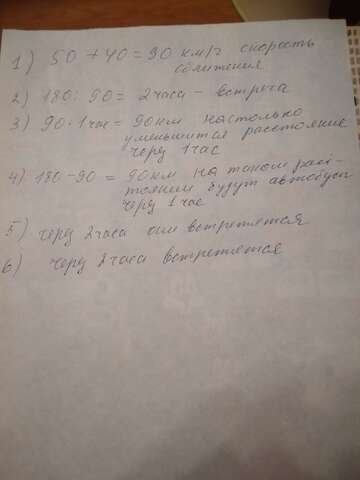 1) 50 + 40 = 90 км/г скорость
сближения
2) 180 : 90 = 2 часа - встреча
3) 90 · 1 час = 90 км настолько
уменьшится расстояние
через 1 час
4) 180 - 90 = 90 км на таком расс-
тоянии будут автобусы
через 1 час
5) через 2 часа они встретятся
6) через 2 часа встретятся